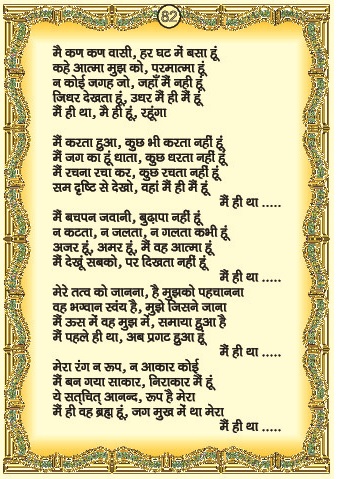 82
मै कण कण वासी, हर घट में बसा हूं
कहे आत्मा मुझ को, परमात्मा हूं
न कोई जगह जो, जहाँ मैं नही हूं
जिधर देखता हूं, उधर मैं ही मैं हूं
मैं ही था, मै ही हूं, रहूंगा
मैं करता हुआ, कुछ भी करता नहीं हूं
मैं जग का हूं धाता, कुछ धरता नहीं हूं
मैं रचना रचा कर, कुछ रचता नहीं हूं
सम दृष्टि से देखो, वहां मैं ही मैं हूं
मैं ही था .....
मैं बचपन जवानी, बुढ़ापा नहीं हूं
न कटता, न जलता, न गलता कभी हूं
अजर हूं, अमर हूं, मैं वह आत्मा हूं
मैं देखूं सबको, पर दिखता नहीं हूं
मैं ही था .....
मेरे तत्व को जानना, है मुझको पहचानना
वह भग्वान स्वंय है, मुझे जिसने जाना
मैं ऊस में वह मुझ में, समाया हुआ है
मैं पहले ही था, अब प्रगट हुआ हूं
मैं ही था .....
मेरा रंग न रूप, न आकार कोई
मैं बन गया साकार, निराकार मैं हूं
ये सत्चित् आनन्द, रूप है मेरा
मैं ही वह ब्रह्म हूं, जग मुख में था मेरा
मैं ही था .....